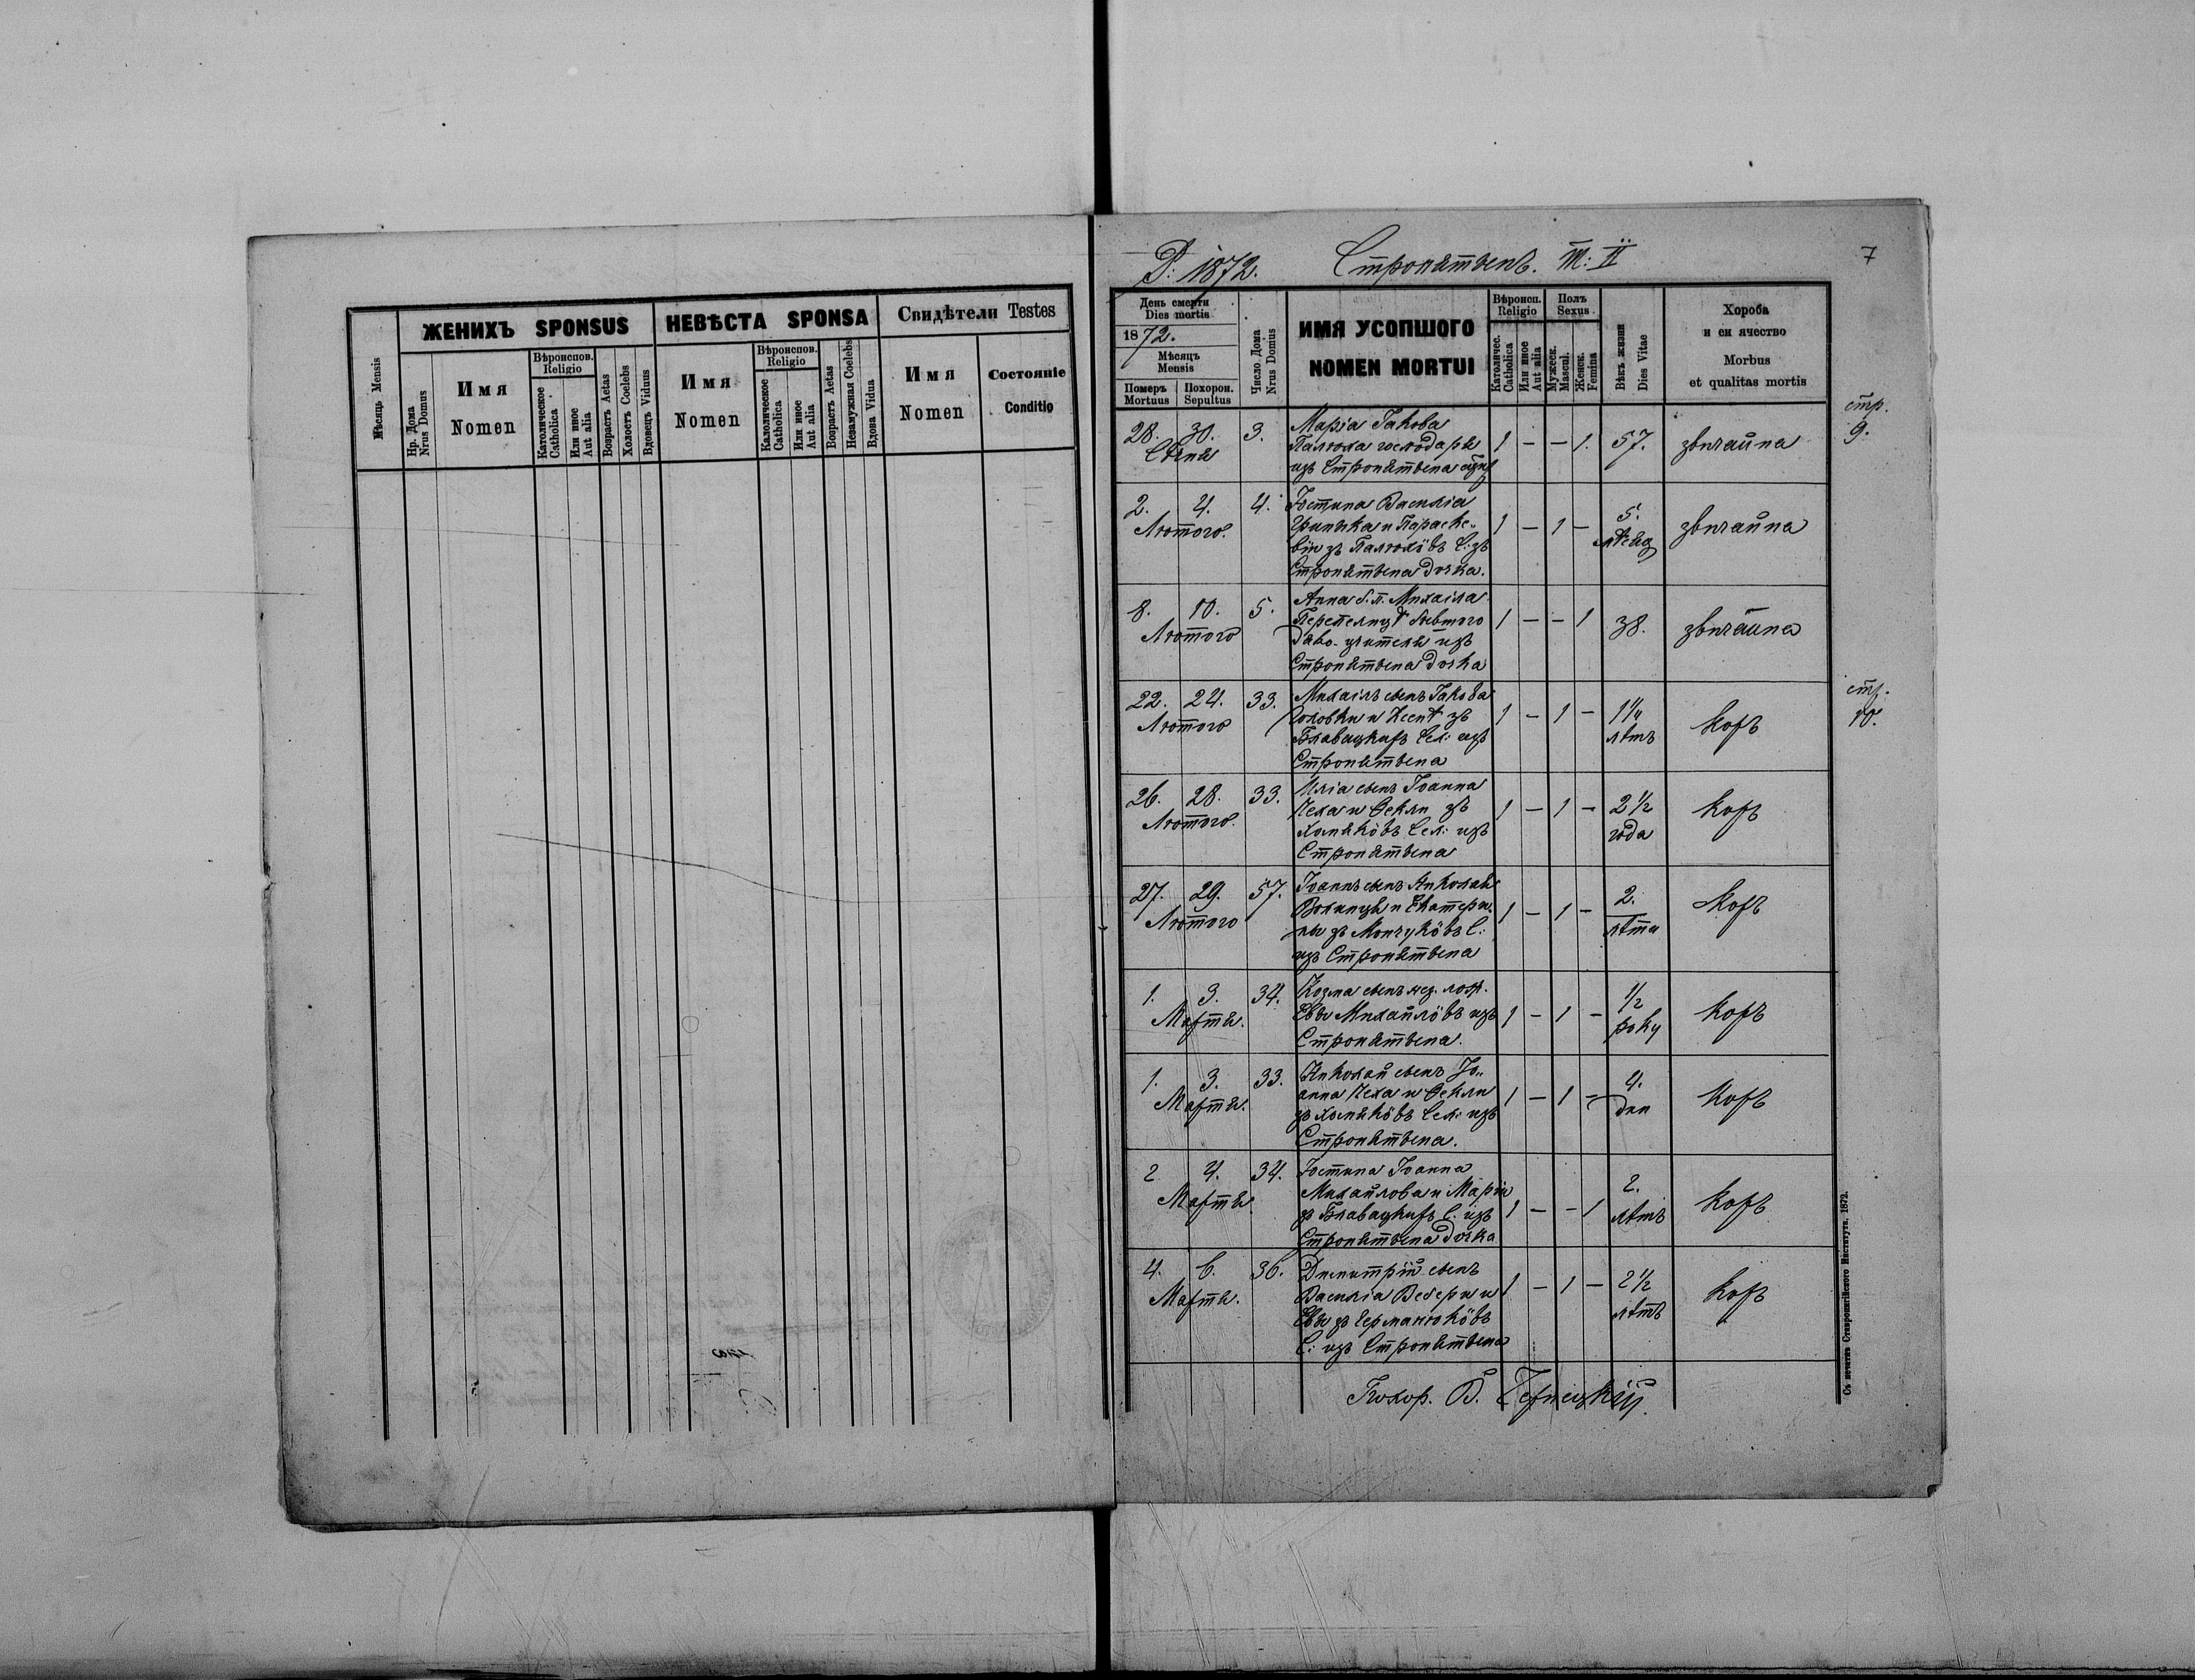 ЖЕНИХЪ SPONSUS
НЕВѢСТА SPONSA
Свидѣтели Testes
Мѣсяць Mensis
Нр. Дома
Nrus Domus
Имя
Nomen
Вѣроиспов.
Religio
Католическое
Catholica
Или иное
Aut alia
Возрастъ Aetas
Холостъ Coelebs
Вдовецъ Viduus
Имя
Nomen
Вѣроиспов.
Religio
Католическое
Catholica
Или иное
Aut alia
Возрастъ Aetas
Незамужная Coelebs
Вдова Vidua
Имя
Nomen
Состояніе
Conditio
Р: 1872. Стронятвенъ. Т: II
7
День смерти
Dies mortis
1872.
Мѣсяцъ
Mensis
Померъ
Mortuus
Похорон.
Sepultus
Число Дома
Nrus Domus
ИМЯ УСОПШОГО
NOMEN MORTUI
Вѣроисп.
Religio
Католичес.
Catholica
Или иное
Aut alia
Полъ
Sexus
Мужеск.
Mascul.
Женск.
Femina
Вѣкъ жизни
Dies Vitae
Хороба
и еи ячество
Morbus
et qualitas mortis
28. 30. 3. Марія Іакова
Січня
Палюха господаря 1 – – 1. 57. звичайна
изъ Стронятвена
стр.
9.
2. 4. 4. Юстина Василія
Лютого.
и Параске-
віи зъ Палюхôвъ С: зъ 1 – 1 – 5. звичайна
Стронятвена дочка.
8. 10. 5. Анна Михаила
Лютого
Перепелицѣ бывшого 1 – – 1 38. звичайна
учителя изъ
Стронятвена дочка
22. 24. 33. Михаилъ сынъ Іакова
Лютого
Головки и зъ 1 – 1 – 1¼ лѣтъ Коръ
Блавацкихъ Сел: изъ
Стронятвена
стр.
10.
26. 28. 33. Илія сынъ Іоанна
Лютого.
Пеха и Феклы зъ 1 – 1 – 2½ года Коръ
Хомякôвъ Сел: изъ
Стронятвена
27. 29. 57. Іоаннъ сынъ Николая
Лютого
и Екатери- 1 – 1 – 2. лѣта Коръ
ны зъ Мончукôвъ С:
изъ Стронятвена
1. 3. 34. Козма сынъ нез. лож.
Марта.
Евы Михайлôвъ изъ 1 – 1 – ½ року Коръ
Стронятвена.
1. 3. 33. Николай сынъ Іо-
Марта.
анна Пеха и Феклы 1 – 1 – 4. дни Коръ
зъ Хомякôвъ Сел: изъ
Стронятвена.
2 4. 34. Юстина Іоанна
Марта.
Михайлова и Маріи
зъ Блавацкихъ С: изъ 1 – – 1 2. лѣтъ Коръ
Стронятвена дочка
4. 6. 36. Димитрій сынъ
Марта.
Василія и 1 – 1 – 2½ лѣтъ Коръ
Евы зъ Германюкôвъ
С: изъ Стронятвена
Съ печатнѣ Ставропигійского Института. 1872.